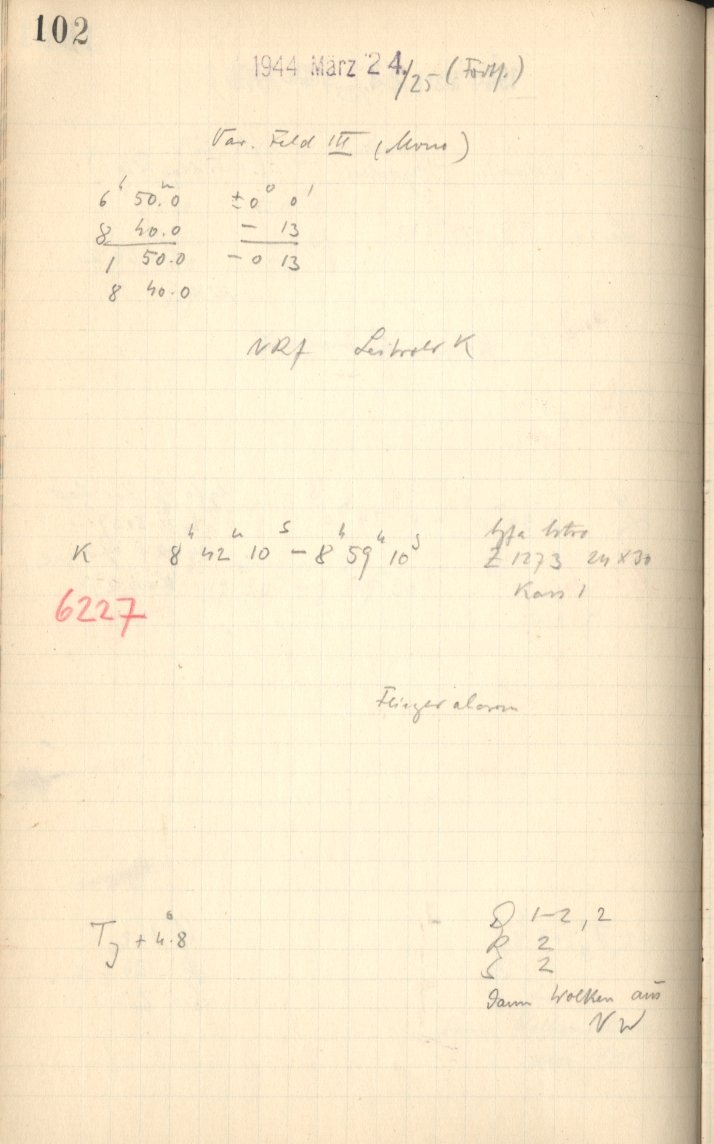 102
1944 März 24./25 (Forts.)
Var. Feld III (Mono)
6h 50.0 ±0° 0'
8 40.0 - 13
1 50.0 - 0 13
8 40.0
K 8h 42m 10s - 8h 59m 10s
Z 1273 24 x 30
Kass 1
6227
Fliegeralarm
+ 4.8
1-2, 2
R 2
2
Dann Wolken aus